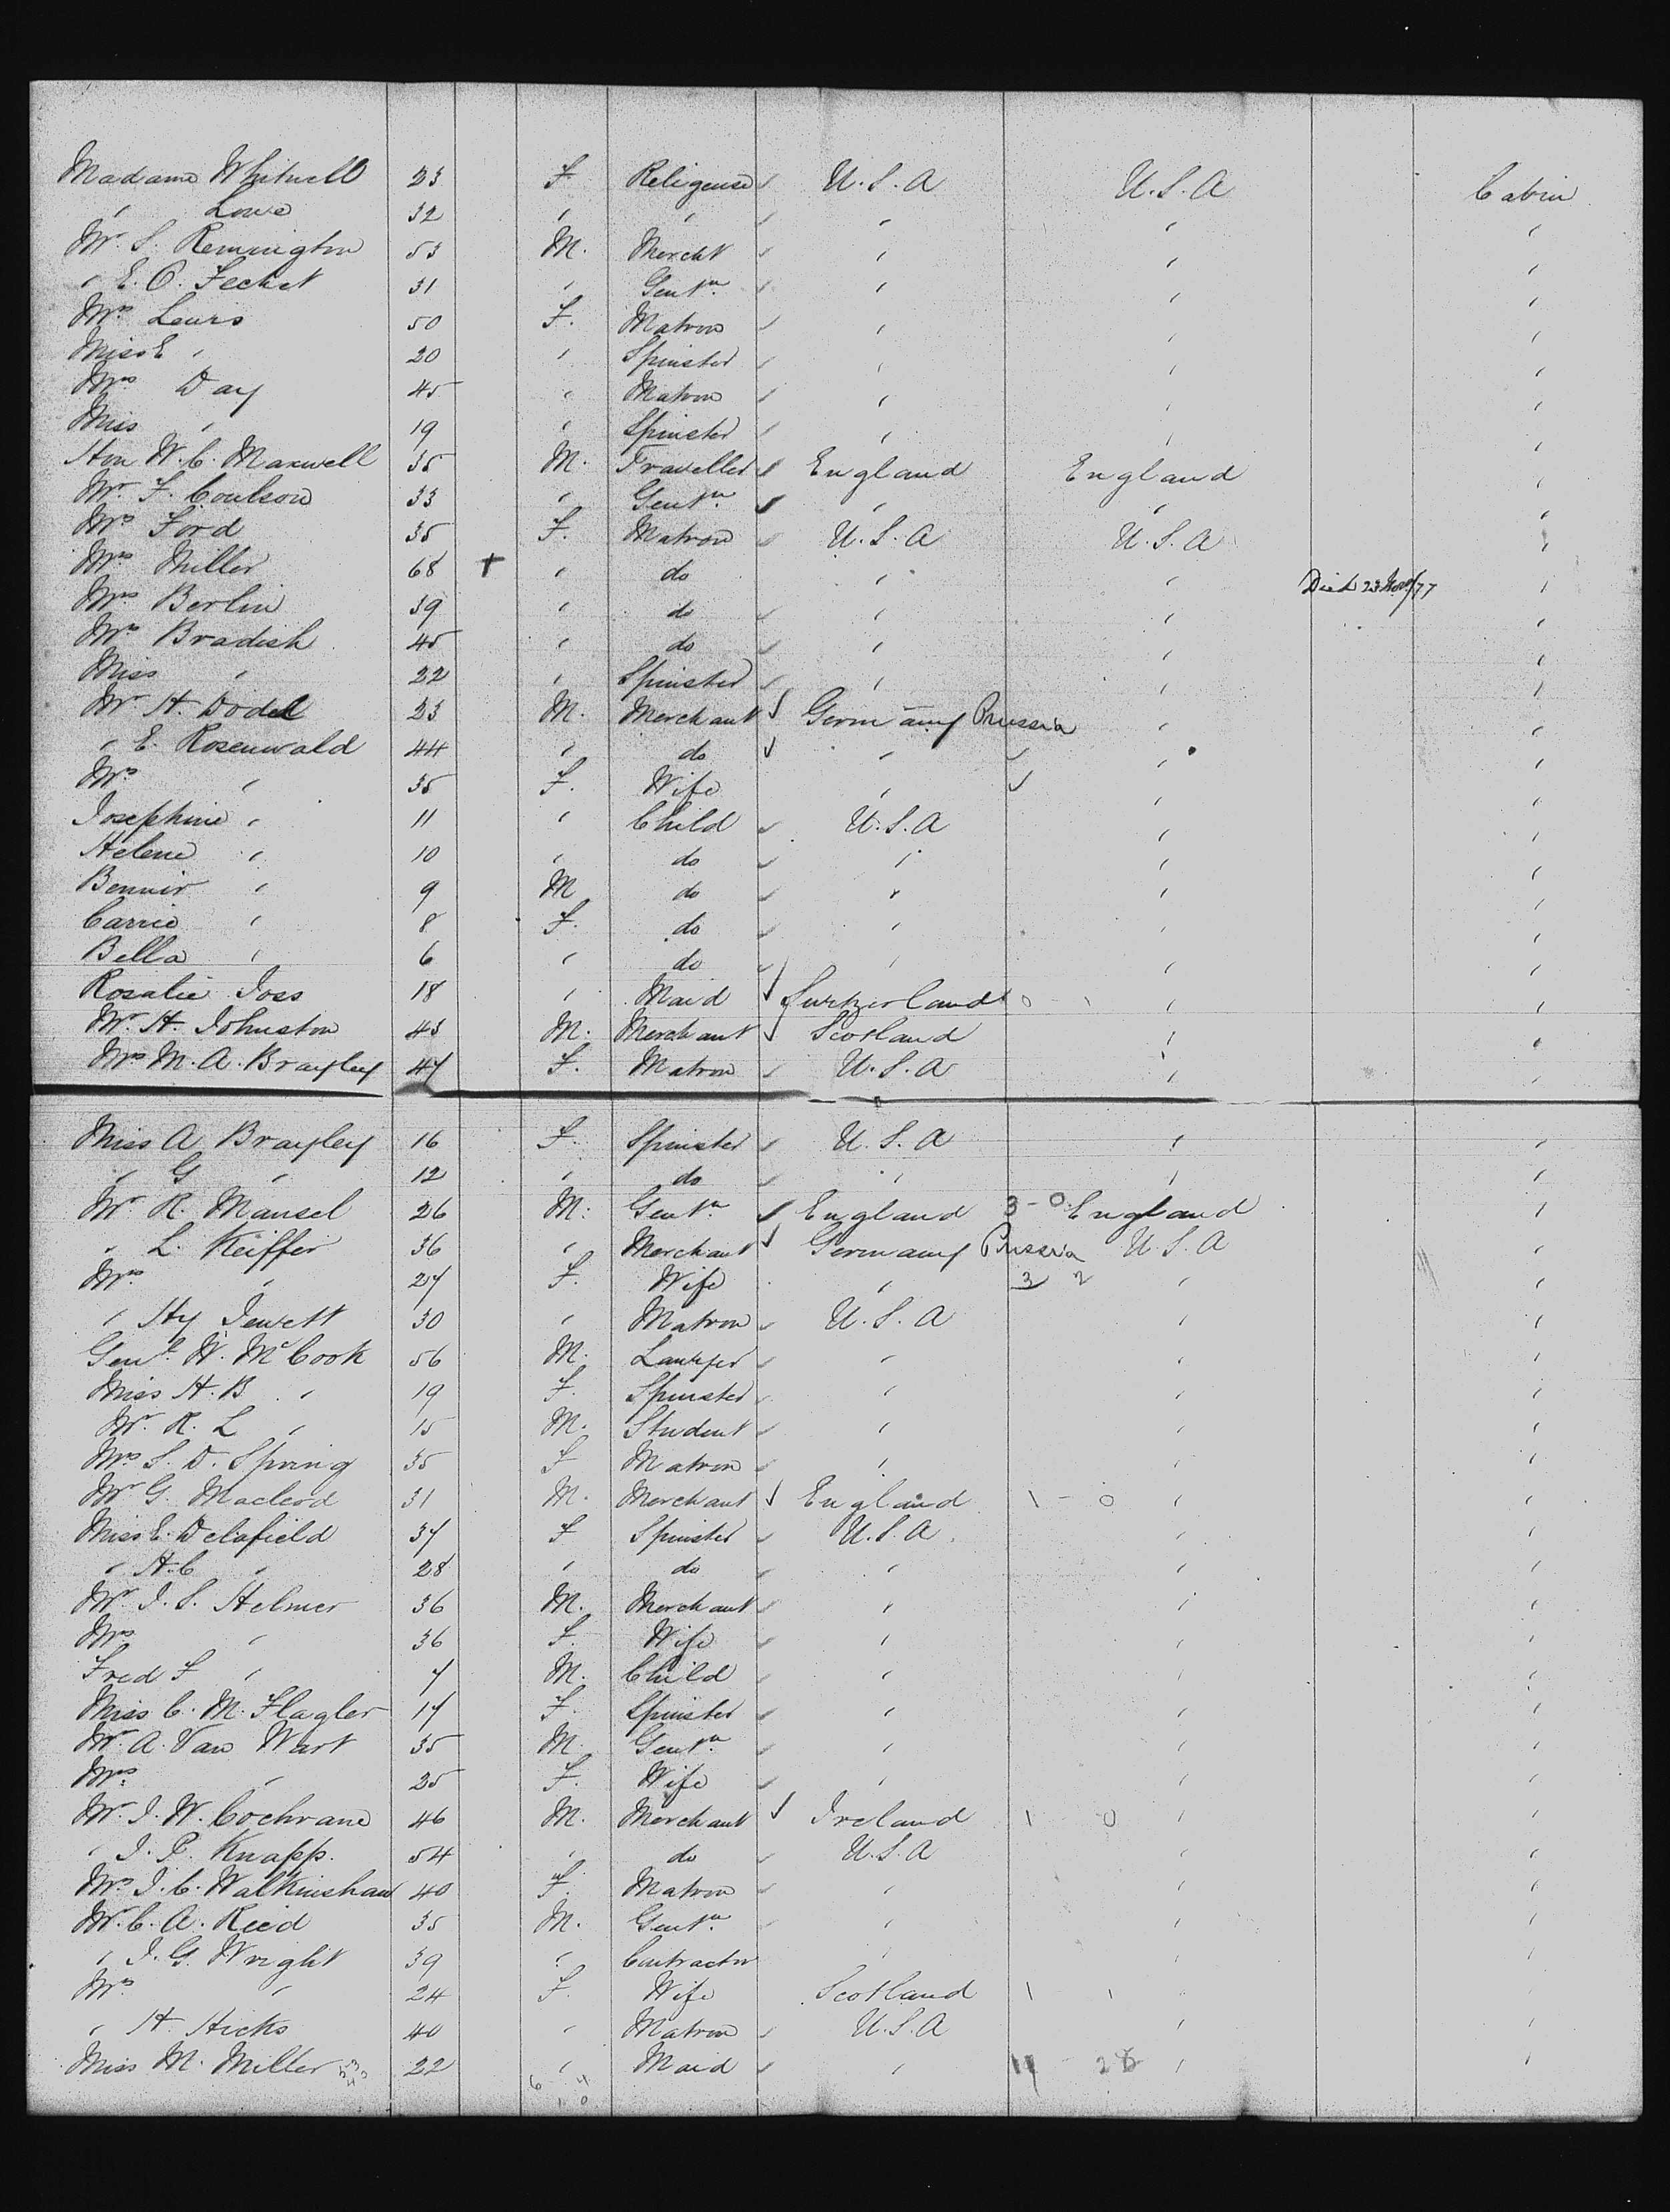 Madame Whitwell 23 F Religeuse U.S.A U.S.A Cabin
" Lowe 32 " " " " "
Mr. S. Remington 53 M. Mercht " " "
" E. O. Fechet 31 " Gentn. " " "
Mrs 50 F. Matron " " "
Miss E " 20 " Spinster " " "
Mrs Day 45 " Matron " " "
Miss " 19 " Spinster " " "
Hon W. C. Maxwell 35 M. Traveller England England "
Mr. F. Coulson 33 " Gentn. " " "
Mrs Ford 35 F. Matron U.S.A U.S.A "
Mrs Miller 68 + " do " " Died 23 /77 "
Mrs Berlin 39 " do " " "
Mrs Bradish 45 " do " " "
Miss " 22 " Spinster " " "
Mr H. Dodel 23 M. Merchant Germany Prussia " "
" E. Rosenwald 44 " do " " "
Mrs " 35 F. Wife " " "
Josephine " 11 " Child U.S.A " "
Helene " 10 " do " " "
9 M do " " "
Carrie " 8 F. do " " "
Bella " 6 " do " " "
Rosalie Joss 18 " Maid Switzerland 0 - 1 " "
Mr. H. Johnston 43 M. Merchant Scotland " "
Mrs M. A. Brayley 47 F. Matron U.S.A " "
Miss A Brayley 16 F. Spinster U.S.A " "
" G " 12 " do " " "
Mr R. Mansel 26 M. Gentn. England 3 - 0 England "
" L. Keiffer 36 " Merchant Germany Prussia U.S.A "
Mrs " 27 F. Wife " 3 2 " "
" Hy Jewett 30 " Matron U.S.A " "
Genl. W. McCook 56 M. Lawyer " " "
Miss H. B " 19 F. Spinster " " "
Mr. R. L " 15 M. Student " " "
Mrs S. D. Spring 35 F Matron " " "
Mr G. Macleod 31 M. Merchant England 1 - 0 " "
Miss E. Delafield 37 F Spinster U.S.A. " "
" H. C " 28 " do " " "
Mr J. S. Helmer 36 M. Merchant " " "
Mrs " 36 F. Wife " " "
Fred F " 7 M. Child " " "
Miss C. M. Flagler 17 F. Spinster " " "
Mr. A. Van Wart 35 M. Gentn. " " "
Mrs. " 25 F. Wife " " "
Mr. J. W. Cochrane 46 M. Merchant Ireland 1 0 " "
" J. P. Knapp. 54 " do U.S.A " "
Mrs J. C. Walkinshaw 40 F. Matron " " "
Mr. C. A. Reed 35 M. Gentn. " " "
" J. G. Wright 39 " Contractor " " "
Mrs " 24 F. Wife Scotland 1 1 "
" H. Hicks 40 " Matron U.S.A " "
Miss M. Miller 22 " Maid " " "
6 4
1 0